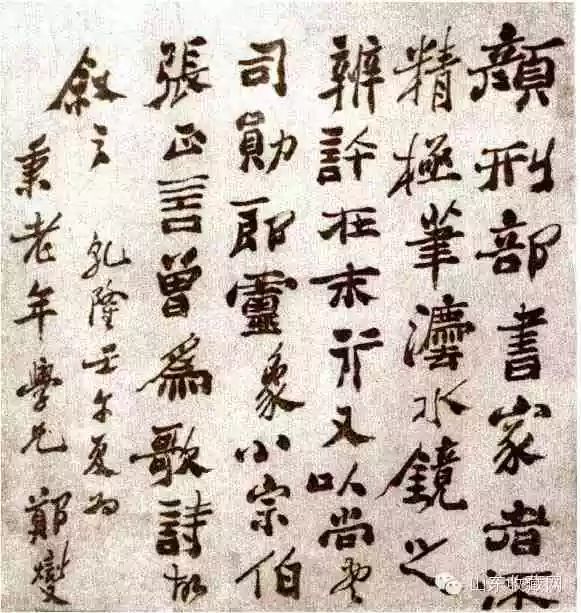 顏刑部書家者流
精極筆灋水鏡之
辨許在末行又以尚書
司勛郎盧象小宗伯
張正言曾爲歌詩故
敘之
乾隆壬午夏爲
秉老年學兄 鄭燮
山东收藏网